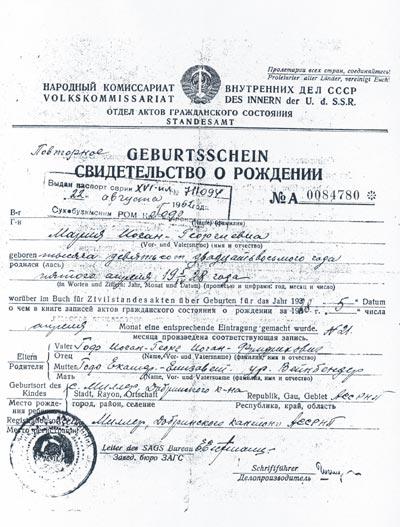 Пролетарии всех стран, соединяйтесь!
Proletarier aller Länder, vereinigt Euch!
НАРОДНЫЙ КОМИССАРИАТ ВНУТРЕННИХ ДЕЛ СССР
VOLKSKOMMISSARIAT DES INNERN der U. d. S.S.R.
ОТДЕЛ АКТОВ ГРАЖДАНСКОГО СОСТОЯНИЯ
STANDESAMT
Повторное
GEBURTSSCHEIN
СВИДЕТЕЛЬСТВО О РОЖДЕНИИ
Выдан паспорт серии XVI-ИЯ № 711094
22 августа 1962 года
РОМ
№ А 0084780
В-г
Г-н Годо
(Name) (фамилия)
Мария Иосан-Георгиевна
(Vor- und Vatersname) (имя и отчество)
geboren тысяча девятьсот двадцать восьмого года
родился (лась) пятого апреля 1928 года
(in Worten und Ziffern: Jahr, Monat und Datum) (прописью и цифрами: год, месяц и число)
worüber im Buch für Zivilstandesakten über Geburten für das Jahr 1928 5 Datum
о чем в книге записей актов гражданского состояния о рождении за числа
апреля Monat eine entsprechende Eintragung gemacht wurde. № 21.
месяца произведена соответствующая запись.
Eltern Vater Годо
Родители Отец (Name, Vor- und Vatersname) (фамилия, имя и отчество)
Mutter Годо
Мать (Name, Vor- und Vatersname) (фамилия, имя и отчество)
Geburtsort des Kindes с. Миллер, к-на АССРНП
Stadt, Rayon, Ortschaft Republik, Gau, Gebiet
Место рождения ребенка город, район, селение Республика, край, область
Миллер, Добринского кантона АССРНП
Место регистрации
Leiter des SAGS Bureau
Завед. бюро ЗАГС
Schriftführer
Делопроизводитель